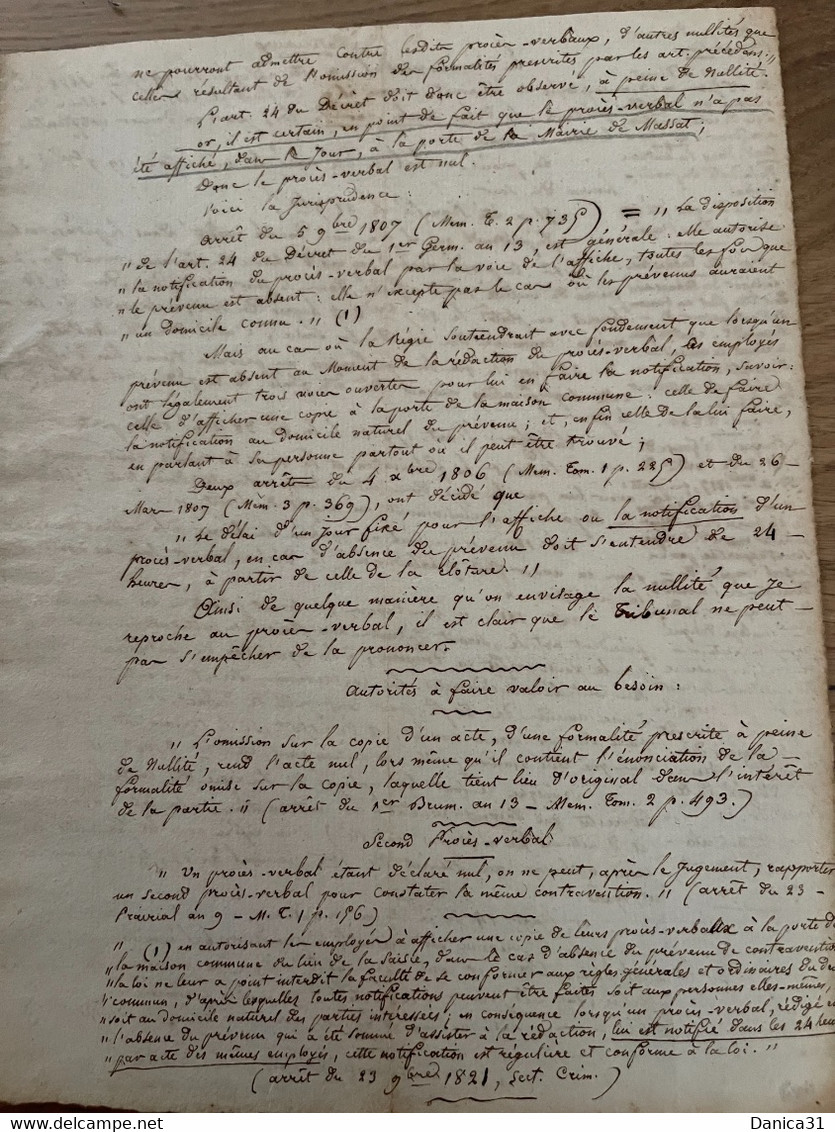 ne pourront admettre contre lesdits procès-verbaux, d'autres nullités que
celles résultant de l'omission des formalités prescrites par les art. précédens. "
L'art. 24 du Décret doit donc être observé, à peine de Nullité.
or, il est certain, en point de fait que le procès-verbal n'a pas
été affiché, dans le Jour, à la porte de la Mairie de Massat;
Donc le procès-verbal est nul.
Voici la Jurisprudence:
Arrêt du 5 9bre 1807 (Mem. T. 2 p. 735) = " La disposition
" de l'art. 24 du Décret du 1er Germ. an 13, est générale: elle autorise
" la notification du procès-verbal par la voie de l'affiche, toutes les fois que
" le prévenu est absent: elle n'excepte pas le cas où les prévenus auraient
" un domicile connu. " (1)
Mais au cas où la Régie soutiendrait avec fondement que lorsqu'un
prévenu est absent au Moment de la rédaction du procès-verbal, les employés
ont légalement trois voies ouvertes pour lui en faire la notification, savoir:
celle d'afficher une copie à la porte de la maison commune: celle de faire
la notification au domicile naturel du prévenu; et, enfin celle de la lui faire,
en parlant à sa personne partout où il peut être trouvé;
Deux arrêts du 4 xbre 1806 (Mem. Tom. 1 p. 225) et du 26-
Mars 1807 (Mém. 3 p. 369), ont décidé que
" Le délai d'un jour fixé pour l'affiche ou la notification d'un
procès-verbal, en cas d'absence du prévenu doit s'entendre de 24-
heures, à partir de celle de la clôture. "
Ainsi de quelque manière qu'on envisage la nullité que Je
reproche au procès-verbal, il est clair que le Tribunal ne peut-
pas s'empêcher de la prononcer.
Autorités à faire valoir au besoin:
" L'omission sur la copie d'un acte, d'une formalité prescrite à peine
de Nullité, rend l'acte nul, lors même qu'il contient l'énonciation de la-
formalité omise sur la copie, laquelle tient lieu d'original dans l'intérêt
de la partie. " (arrêt du 1er Brum. an 13 - Mem. Tom. 2 p. 493.)
Second Procès-verbal
" Un procès-verbal étant déclaré nul, on ne peut, après le Jugement, rapporter
un second procès-verbal pour constater la même contravention. " (arrêt du 23-
Prairial an 9 - M. T. 1 p. 156)
" (1) en autorisant les employés à afficher une copie de leurs procès-verbaux à la porte de
" la maison commune du lieu de la saisie, dans le cas d'absence du prévenu de contravention
" la loi ne leur a point interdit la faculté de se conformer aux règles générales et ordinaires du droit
" commun, d'après lesquelles toutes notifications peuvent être faites soit aux personnes elles-mêmes,
" soit au domicile naturel des parties intéressées; en conséquence lorsqu'un procès-verbal, rédigé en
" l'absence du prévenu qui a été sommé d'assister à la rédaction, lui est notifié dans les 24 heures
" par acte des mêmes employés, cette notification est régulière et conforme à la loi. "
(arrêt du 23 9bre 1821, Sect. Crim.)
Danica31